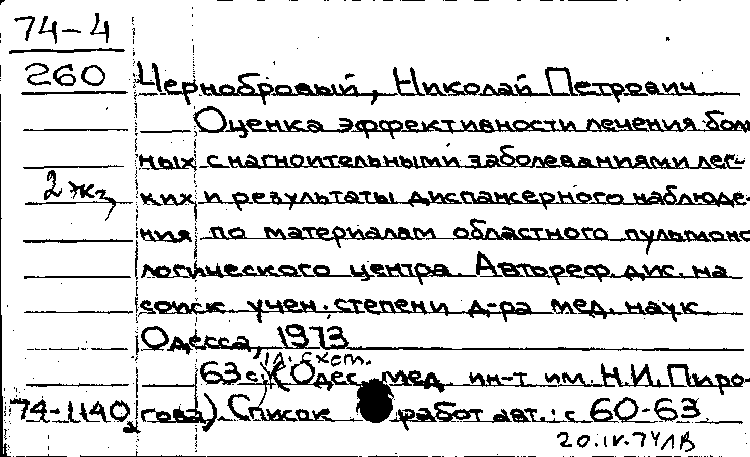 74-4
260
Чернобровый, Николай Петрович
Оценка эффективности лечения боль
ных с нагноительными заболеваниями лег-
2 экз,
ких и результаты диспансерного наблюде-
ния по материалам областного пульмоно
логического центра. Автореф. дис. на
соиск. учен. степени д-ра мед. наук.
Одесса, 1973
63 с. (Одес. мед. ин-т им. Н.И. Пиро-
74-1140
гова). Список работ авт.: с 60-63
20.IV.74